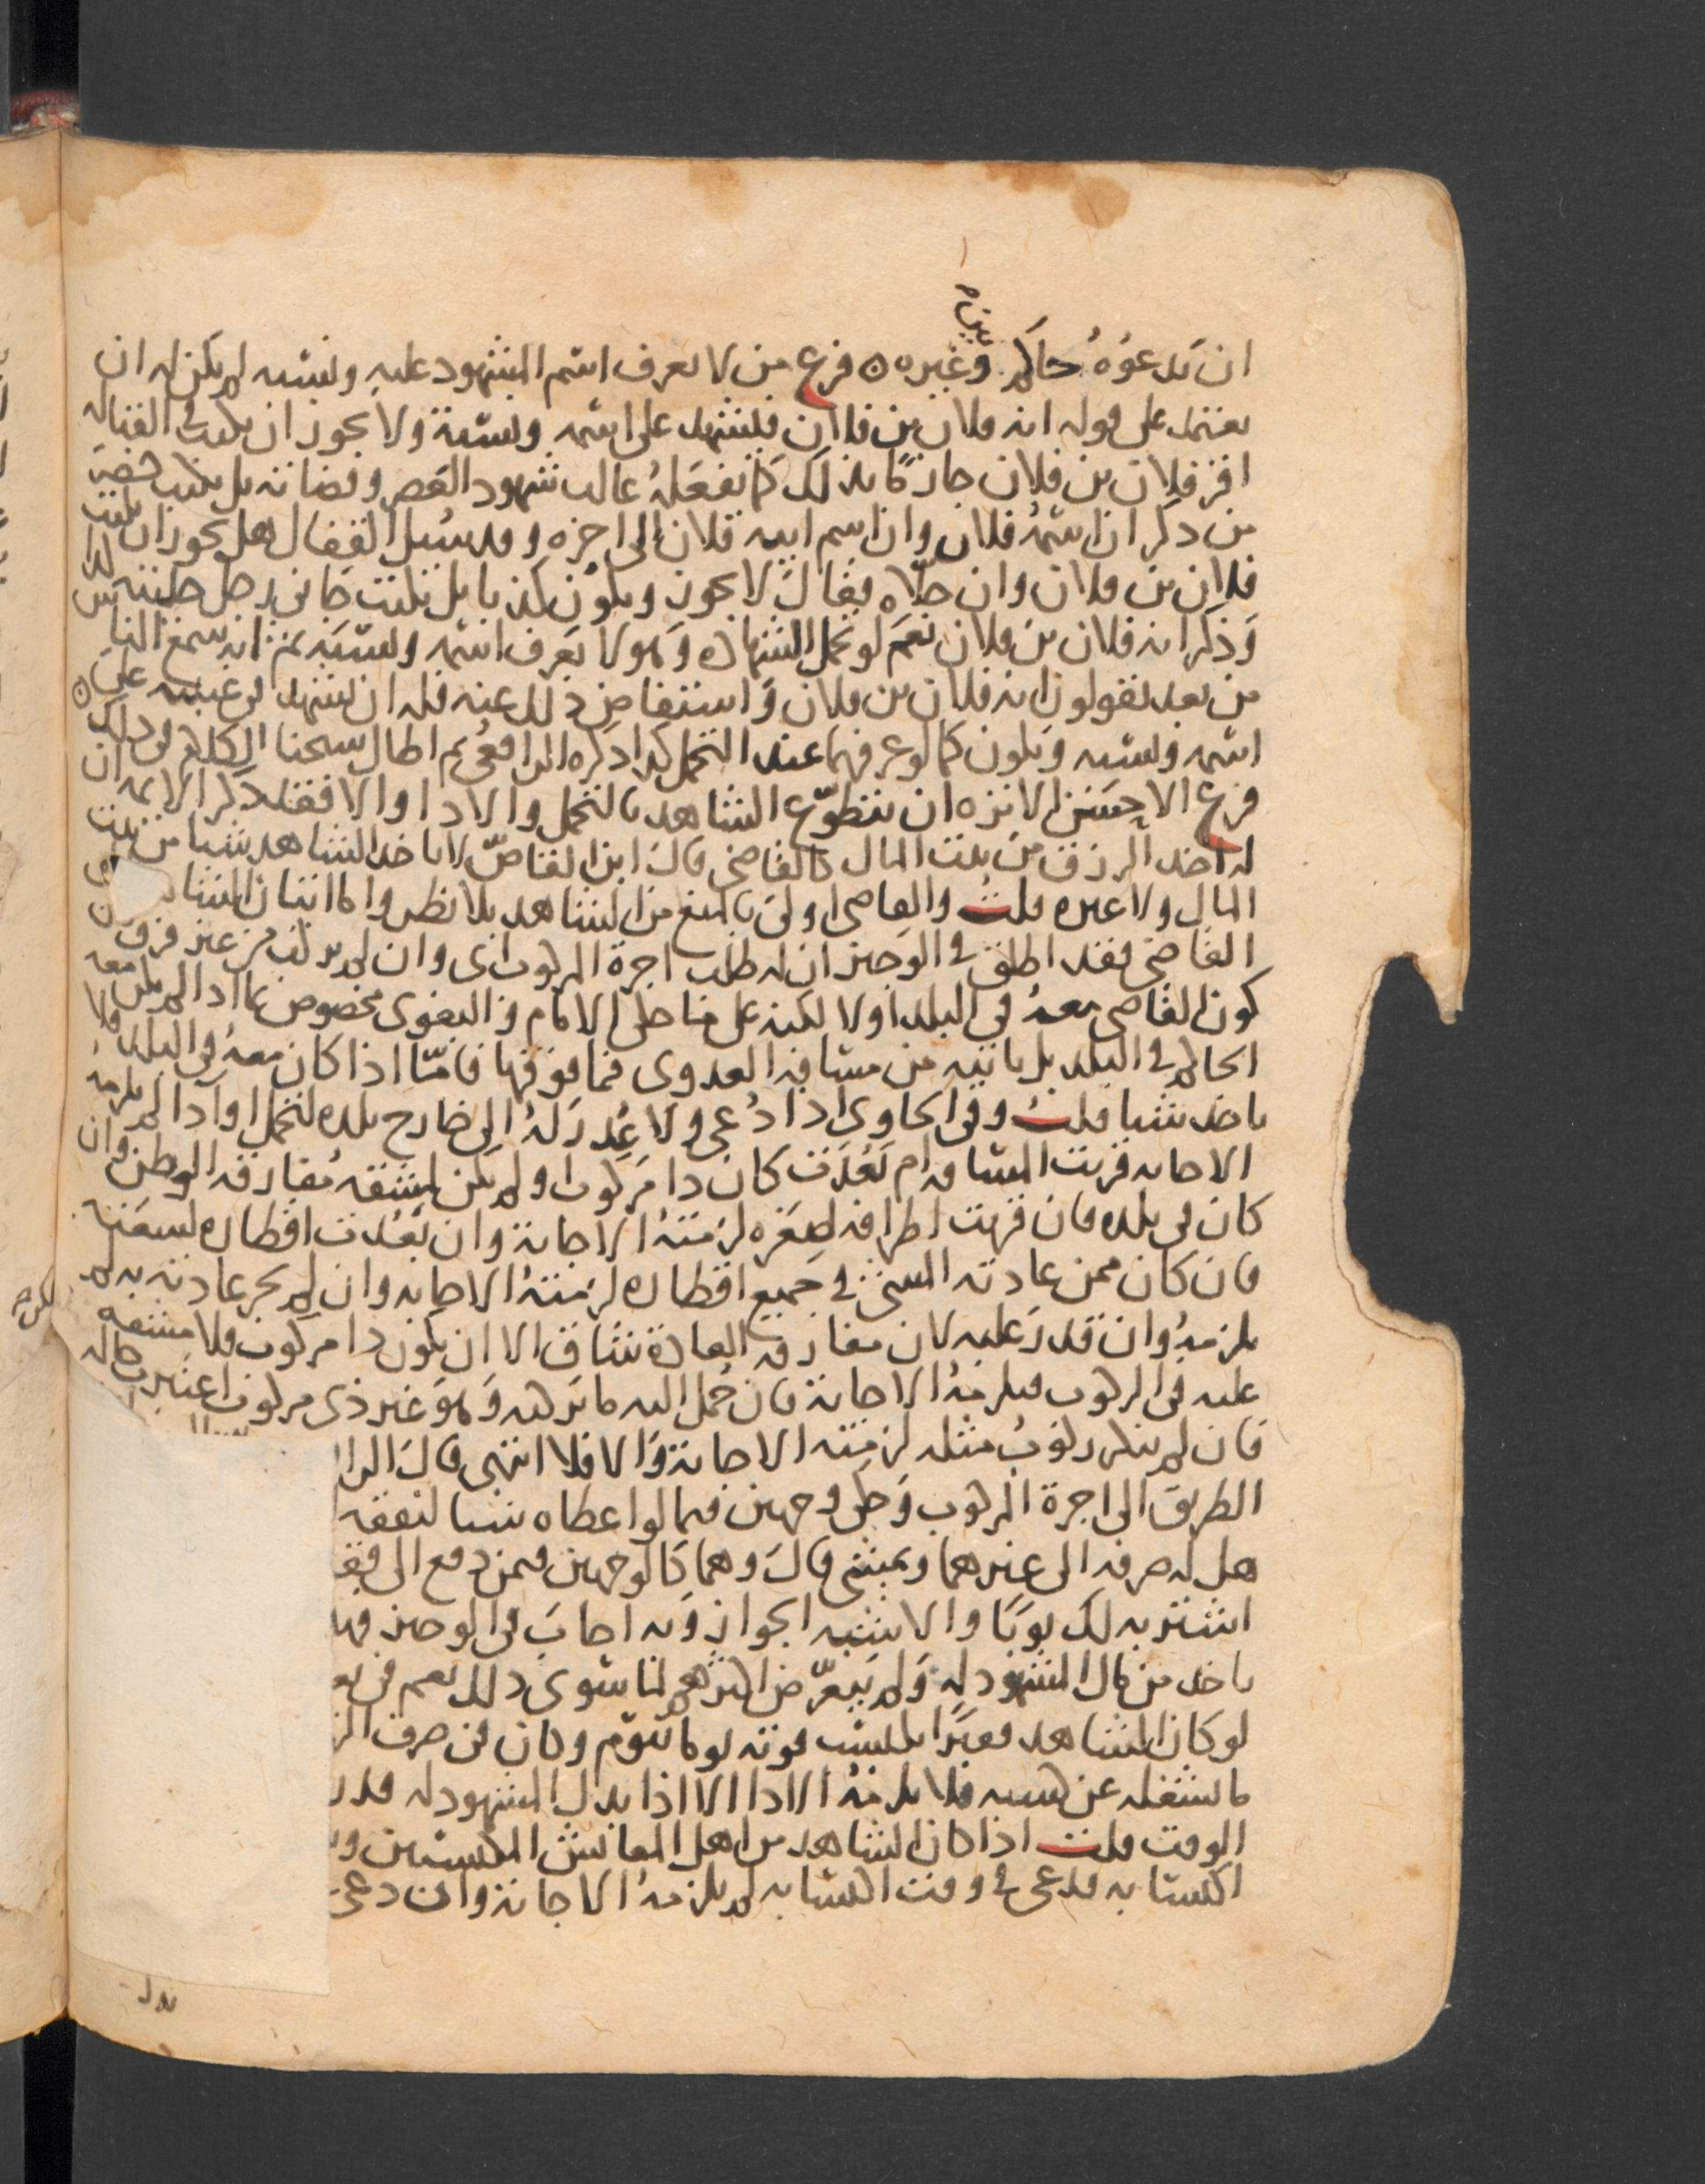 بين
ان يدعوه حاكم وغيره ٥ فرع من لا يعرف اسم المشهود عليه ونسبه لم يكن له ان
يعتمد على قوله انه فلان بن فلان فيشهد على اسمه ونسبه ولا يجوز ان يكتب في القباله
اقر فلان بن فلان جازمًا بذلك كما يفعله غالب شهود العصر وقضاته بل يكتب حضر
من ذكر ان اسمه فلان وان اسم ابيه فلان الى اخره وقد سئل القفال هل يجوز ان يكتب
فلان بن فلان وان حلاه فقال لا يجوز ويكون كذبا بل يكتب جاني رجل حليته كذا
وذكر انه فلان بن فلان نعم لو تحمل الشهاده وهو لا يعرف اسمه ونسبه ثم انه سمع الناس
من بعد يقولون انه فلان بن فلان واستفاض ذلك عنه فله ان يشهد في غيبته على
اسمه ونسبه ويكون كما لو عرفهما عند التحمل كذا ذكره الرافعي ثم اطال شيخنا الكلام في ذلك ٥
فرع الاحسن الانزه ان يتطوع الشاهد بالتحمل والادا والا فقد ذكر الايمه ان
له اخذ الرزق من بيت المال كالقاضي قال ابن القاص لا ياخذ الشاهد شيا من بيت
المال ولا غيره قلت والقاضي اولى بالمنع من الشاهد بلا نظر واما اتيان الشا
القاضي فقد اطلق في الوجيز ان له طلب اجرة المركوب اي وان لم يركب من غير فرق بين
كون القاضي معه في البلد او لا لكنه على ما حكى الامام والبغوي مخصوص بما اذا لم يكن معه
الحاكم في البلد بل ياتيه من مسافة العدوى فما فوقها فاما اذا كان معه في البلد فلا
ياخذ شيا قلت وفي الحاوي اذا دعي ولا عذر له الى خارج بلده لتحمل او ادا لم يلزمه
الاجابه قربت المسافه ام بعدت كان ذا مركوب او لم يكن لمشقه مفارقه الوطن وان
كان في بلده فان قربت اطرافه لصغره لزمته الاجابة وان بعدت اقطاره لسعته
فان كان ممن عادته المشي في جميع اقطاره لزمته الاجابه وان لم تجر عادته به لم
يلزمه وان قدر عليه لان مفارقه العادة شاق الا ان يكون ذا مركوب فلا مشقه
عليه في الركوب فيلزمه الاجابة فان حمل اليه ما يركبه وهو غير ذي مركوب اعتبرت حاله
فان لم ينكر ركوب مثله لزمته الاجابة والا فلا انتهى قال الرا
الطريق الى اجرة المركوب وحكى وجهين فيما لو اعطاه شيا لنفقه
هل له صرفه الى غيرهما ويمشي قال وهما كالوجهين فيمن دفع الى فقـ
اشتر به لك ثوبًا والاشبه الجواز وبه اجاب في الوجيز فهـ
ياخذ من مال المشهود له ولم يتعرض اكثرهم لما سوى ذلك نعم في تعـ
لو كان الشاهد فقيرًا يكتسب قوته يوما بيوم وكان في صرف الز
ما يشغله عن كسبه فلا يلزمه الادا الا اذا بذل المشهود له قدر
الوقت قلت اذا كان الشاهد من اهل المعايش المكتسبين و
اكتسابه فدعي في وقت اكتسابه لم يلزمه الاجابة وان دعي